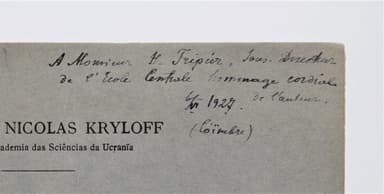 A Monsieur H. Tripier, Sous-Directeur
de l'Ecole Centrale hommage cordiale
de l'auteur.
1927
(Coïmbre)
NICOLAS KRYLOFF
ademia das Sciências da Ucrania